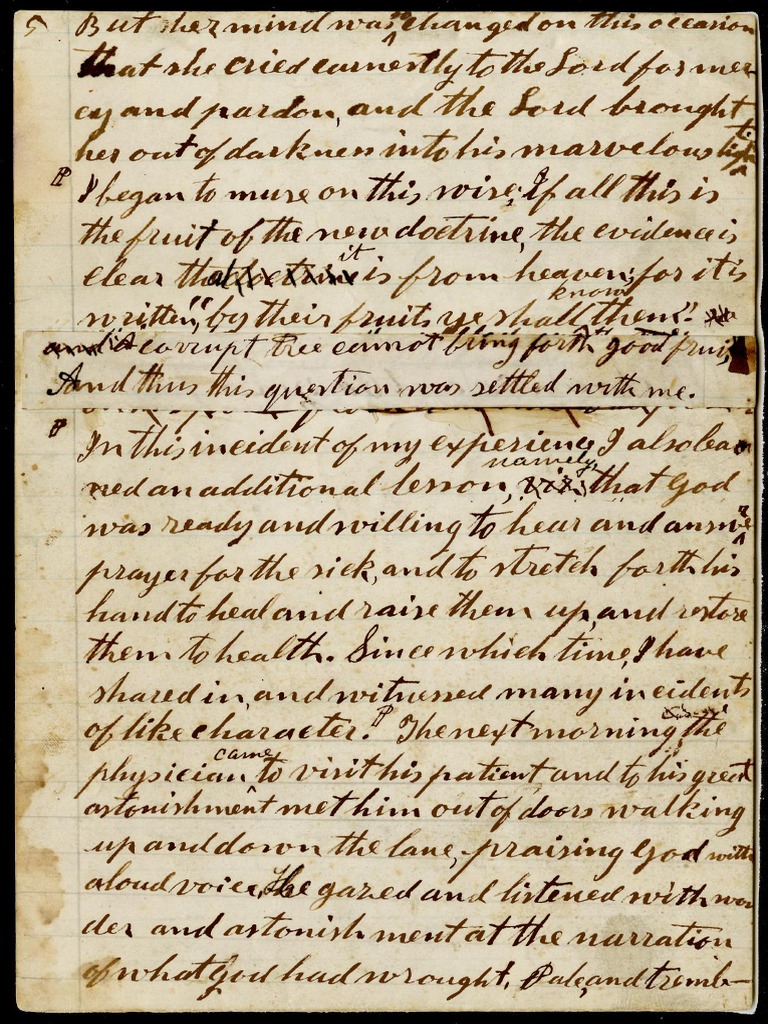 5 But her mind was so changed on this occasion
that she cried earnestly to the Lord for mer-
cy and pardon, and the Lord brought
her out of darkness into his marvelous light
I began to muse on this wise; If all this is
the fruit of the new doctrine, the evidence is
clear that doctrine it is from heaven; for it is
written, "by their fruits ye shall know them".
corrupt tree cannot bring forth good fruit,
And thus this question was settled with me.
In this incident of my experience, I also lear
ned an additional lesson, viz; namely, that God
was ready and willing to hear and answer
prayer for the sick, and to stretch forth his
hand to heal and raise them up, and restore
them to health. Since which time, I have
shared in, and witnessed many incidents
of like character. The next morning, the
physician came to visit his patient and to his great
astonishment met him out of doors walking
up and down the lane, praising God with
a loud voice, He gazed and listened with won
der and astonishment at the narration
of what God had wrought. Pale, and tremb-